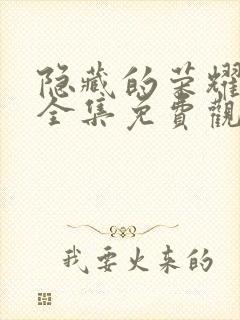 隐藏的荣耀
全集免費觀
我要火来的